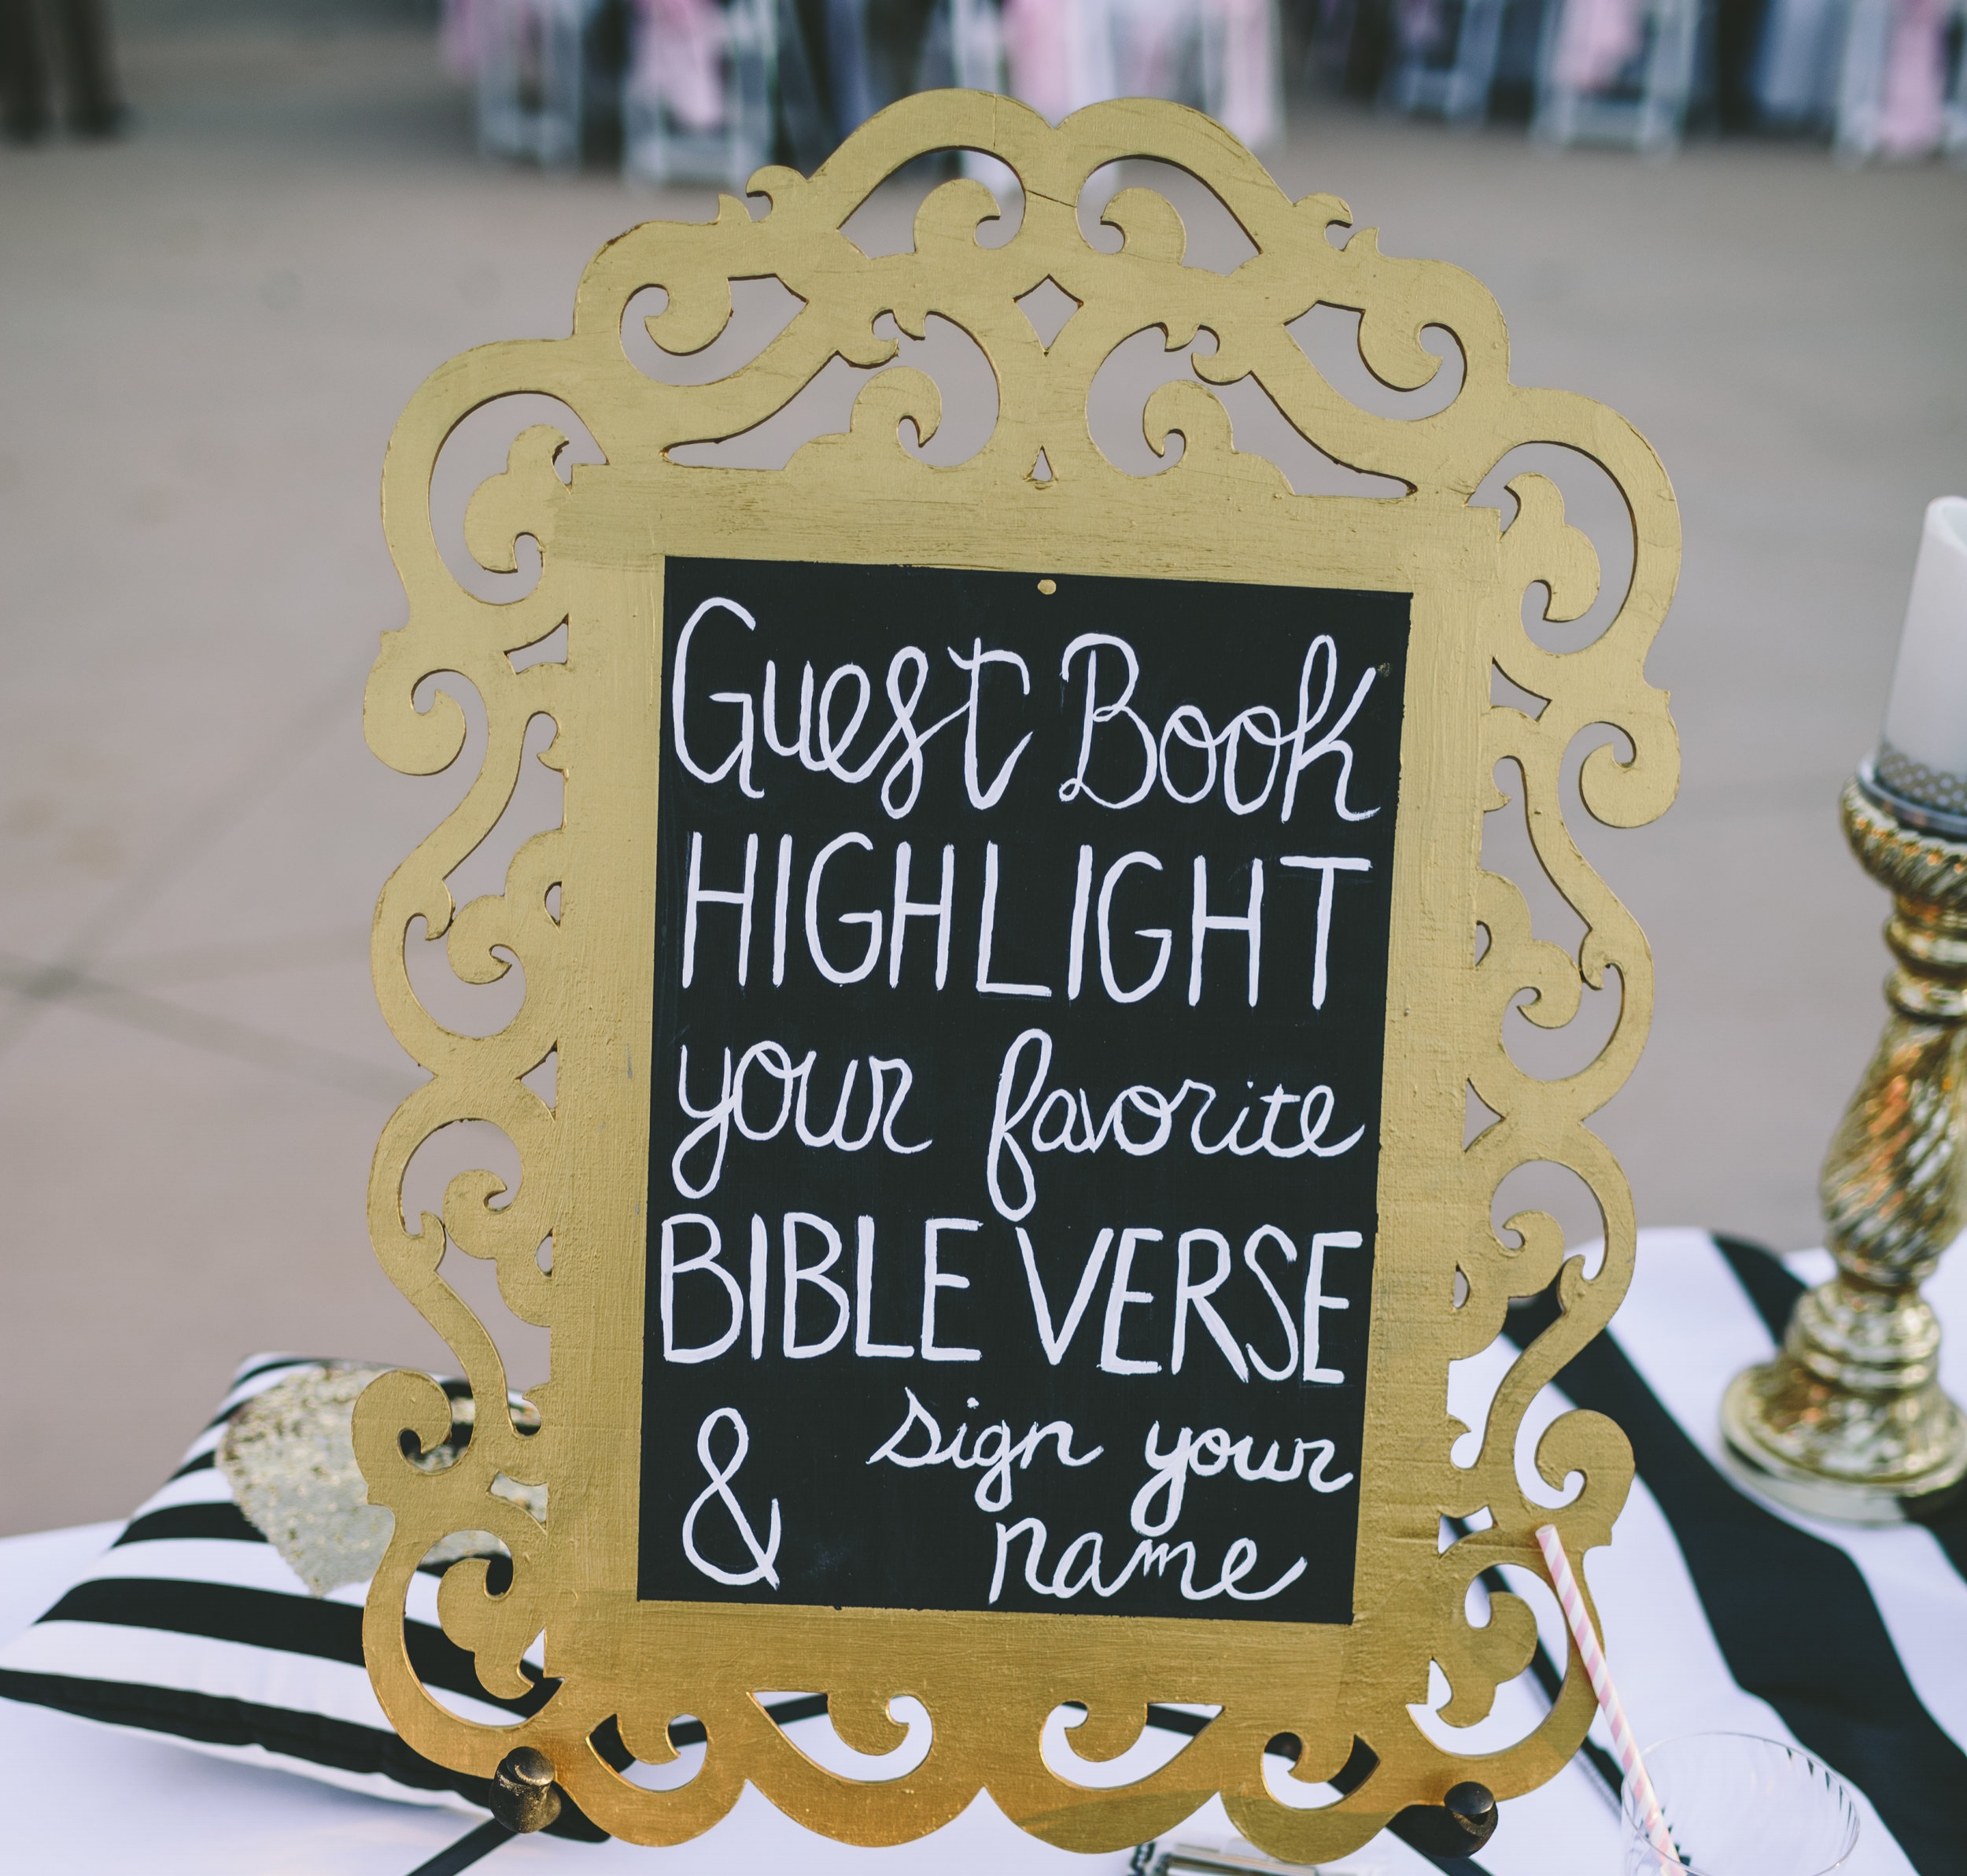 Guest Book
HIGHLIGHT
your favorite
BIBLE VERSE
& sign your
name